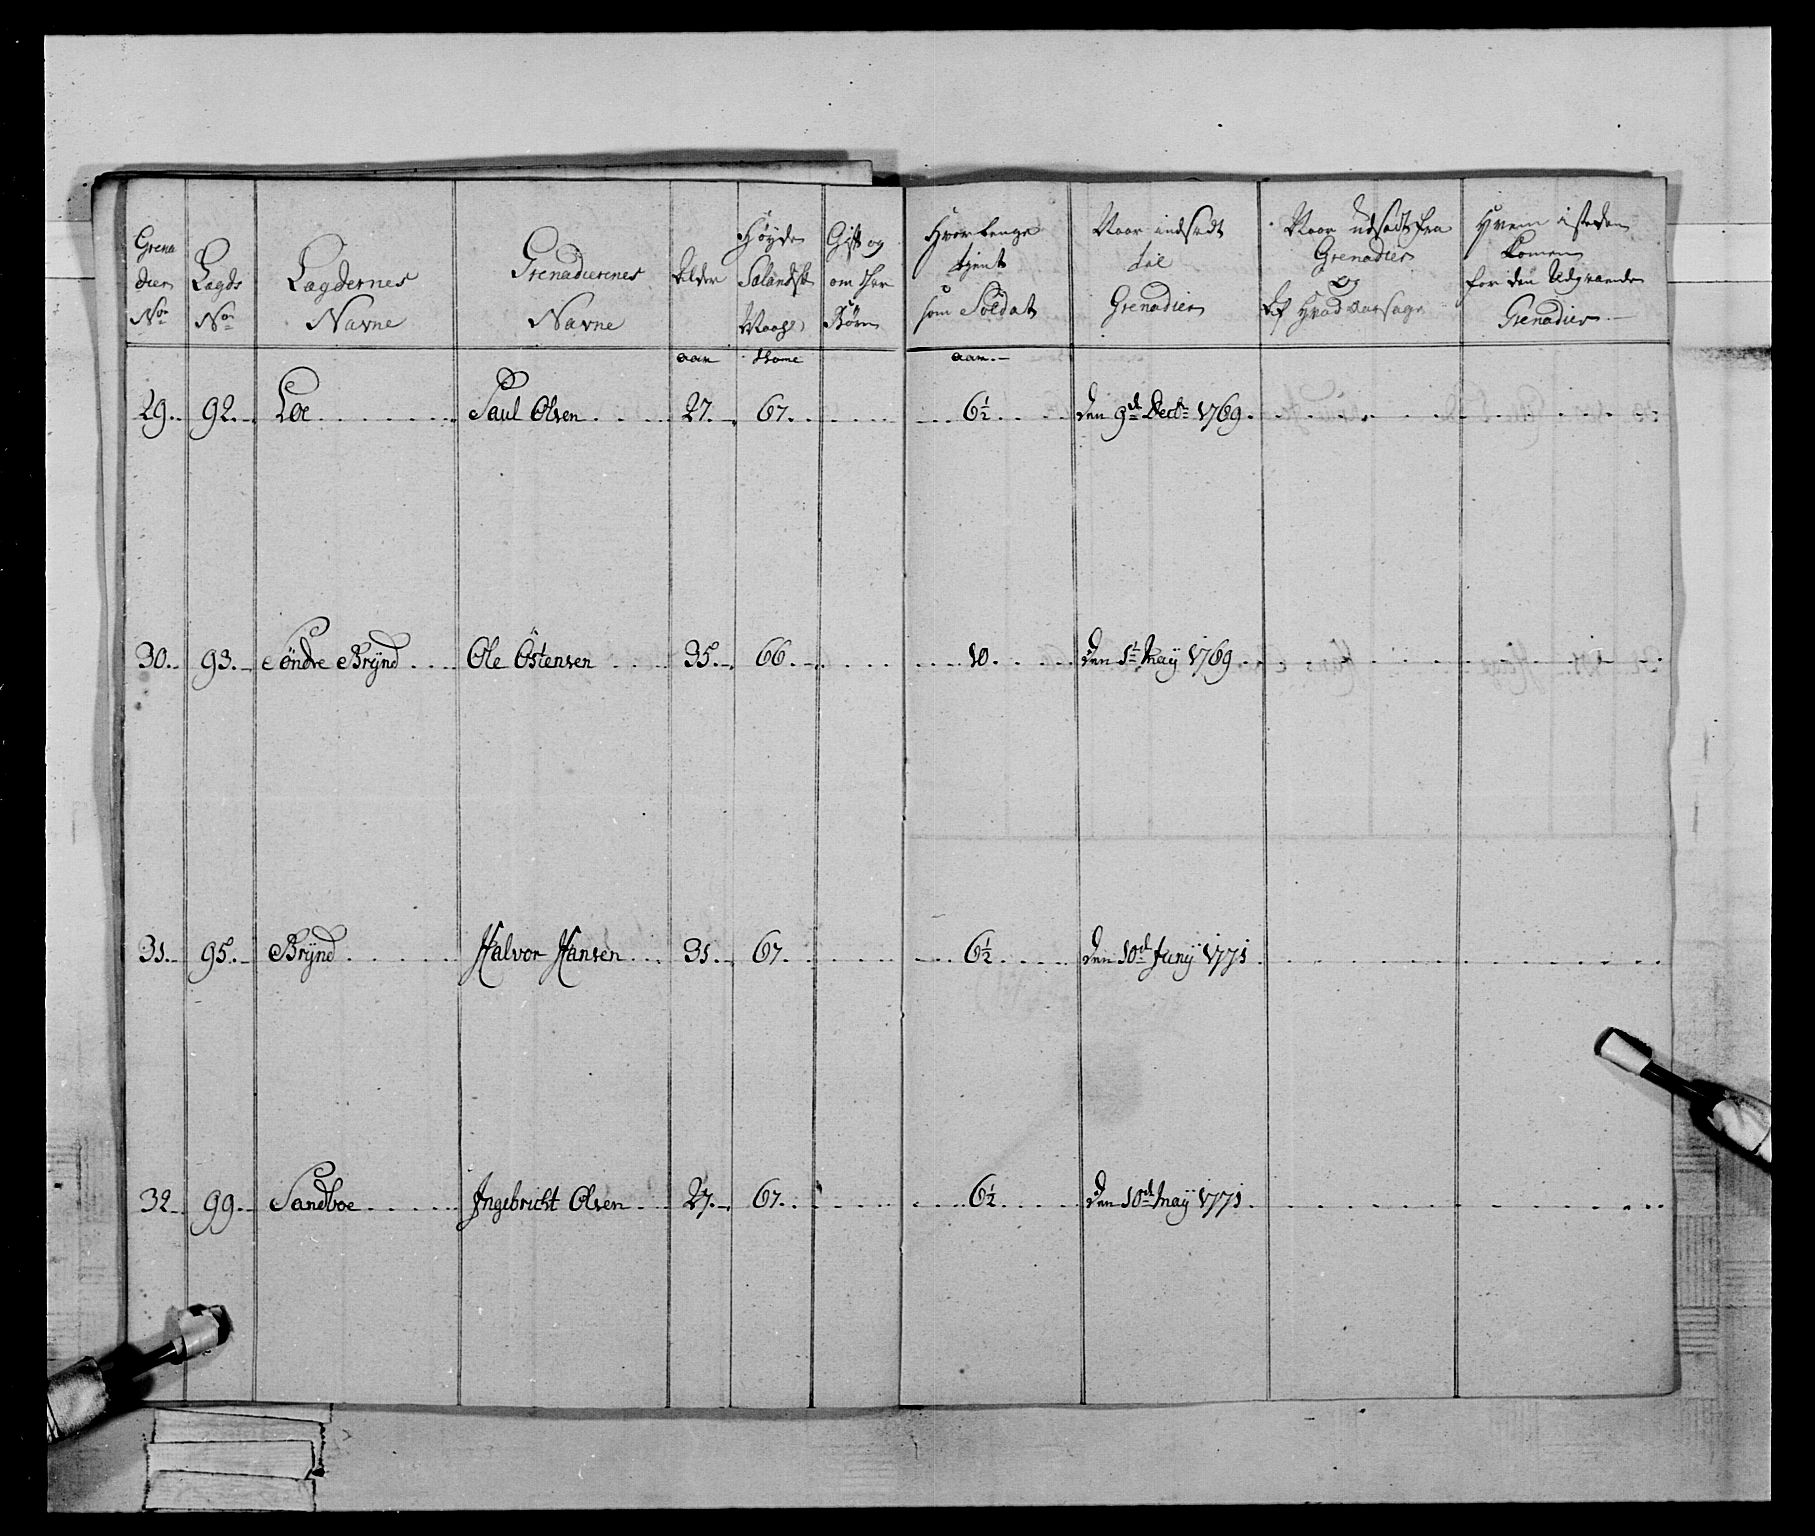 Grena
dier
Nor
Lægds
Nor
Lægdernes
Navne
Grenadierenes
Navne
Alder
Høyde
Salandsk
Maahl
Gift og
om der
Børn
Hvorlenge
tjent
som Soldat
Naar indsadt
til
Grenadier
Naar udsadt fra
Grenadier
og
af Hvad aarsage
Hvem i steden
komen
for den Udgaaende
Grenadier
aar tome aar
29. 92. Loe Paul Olsen 27. 67. 6½ den 9d Decbr 1769.
30. 93. Söndre Brÿnd Ole Östensen 35. 66 10 den 1t Maÿ 1769
31. 95. Brÿnd Halvor Hansen 31. 67. 6½ den 10d Junÿ 1771
32 99. Sandboe Jngebricht Olsen 27. 67. 6½ den 10d Maÿ 1771.